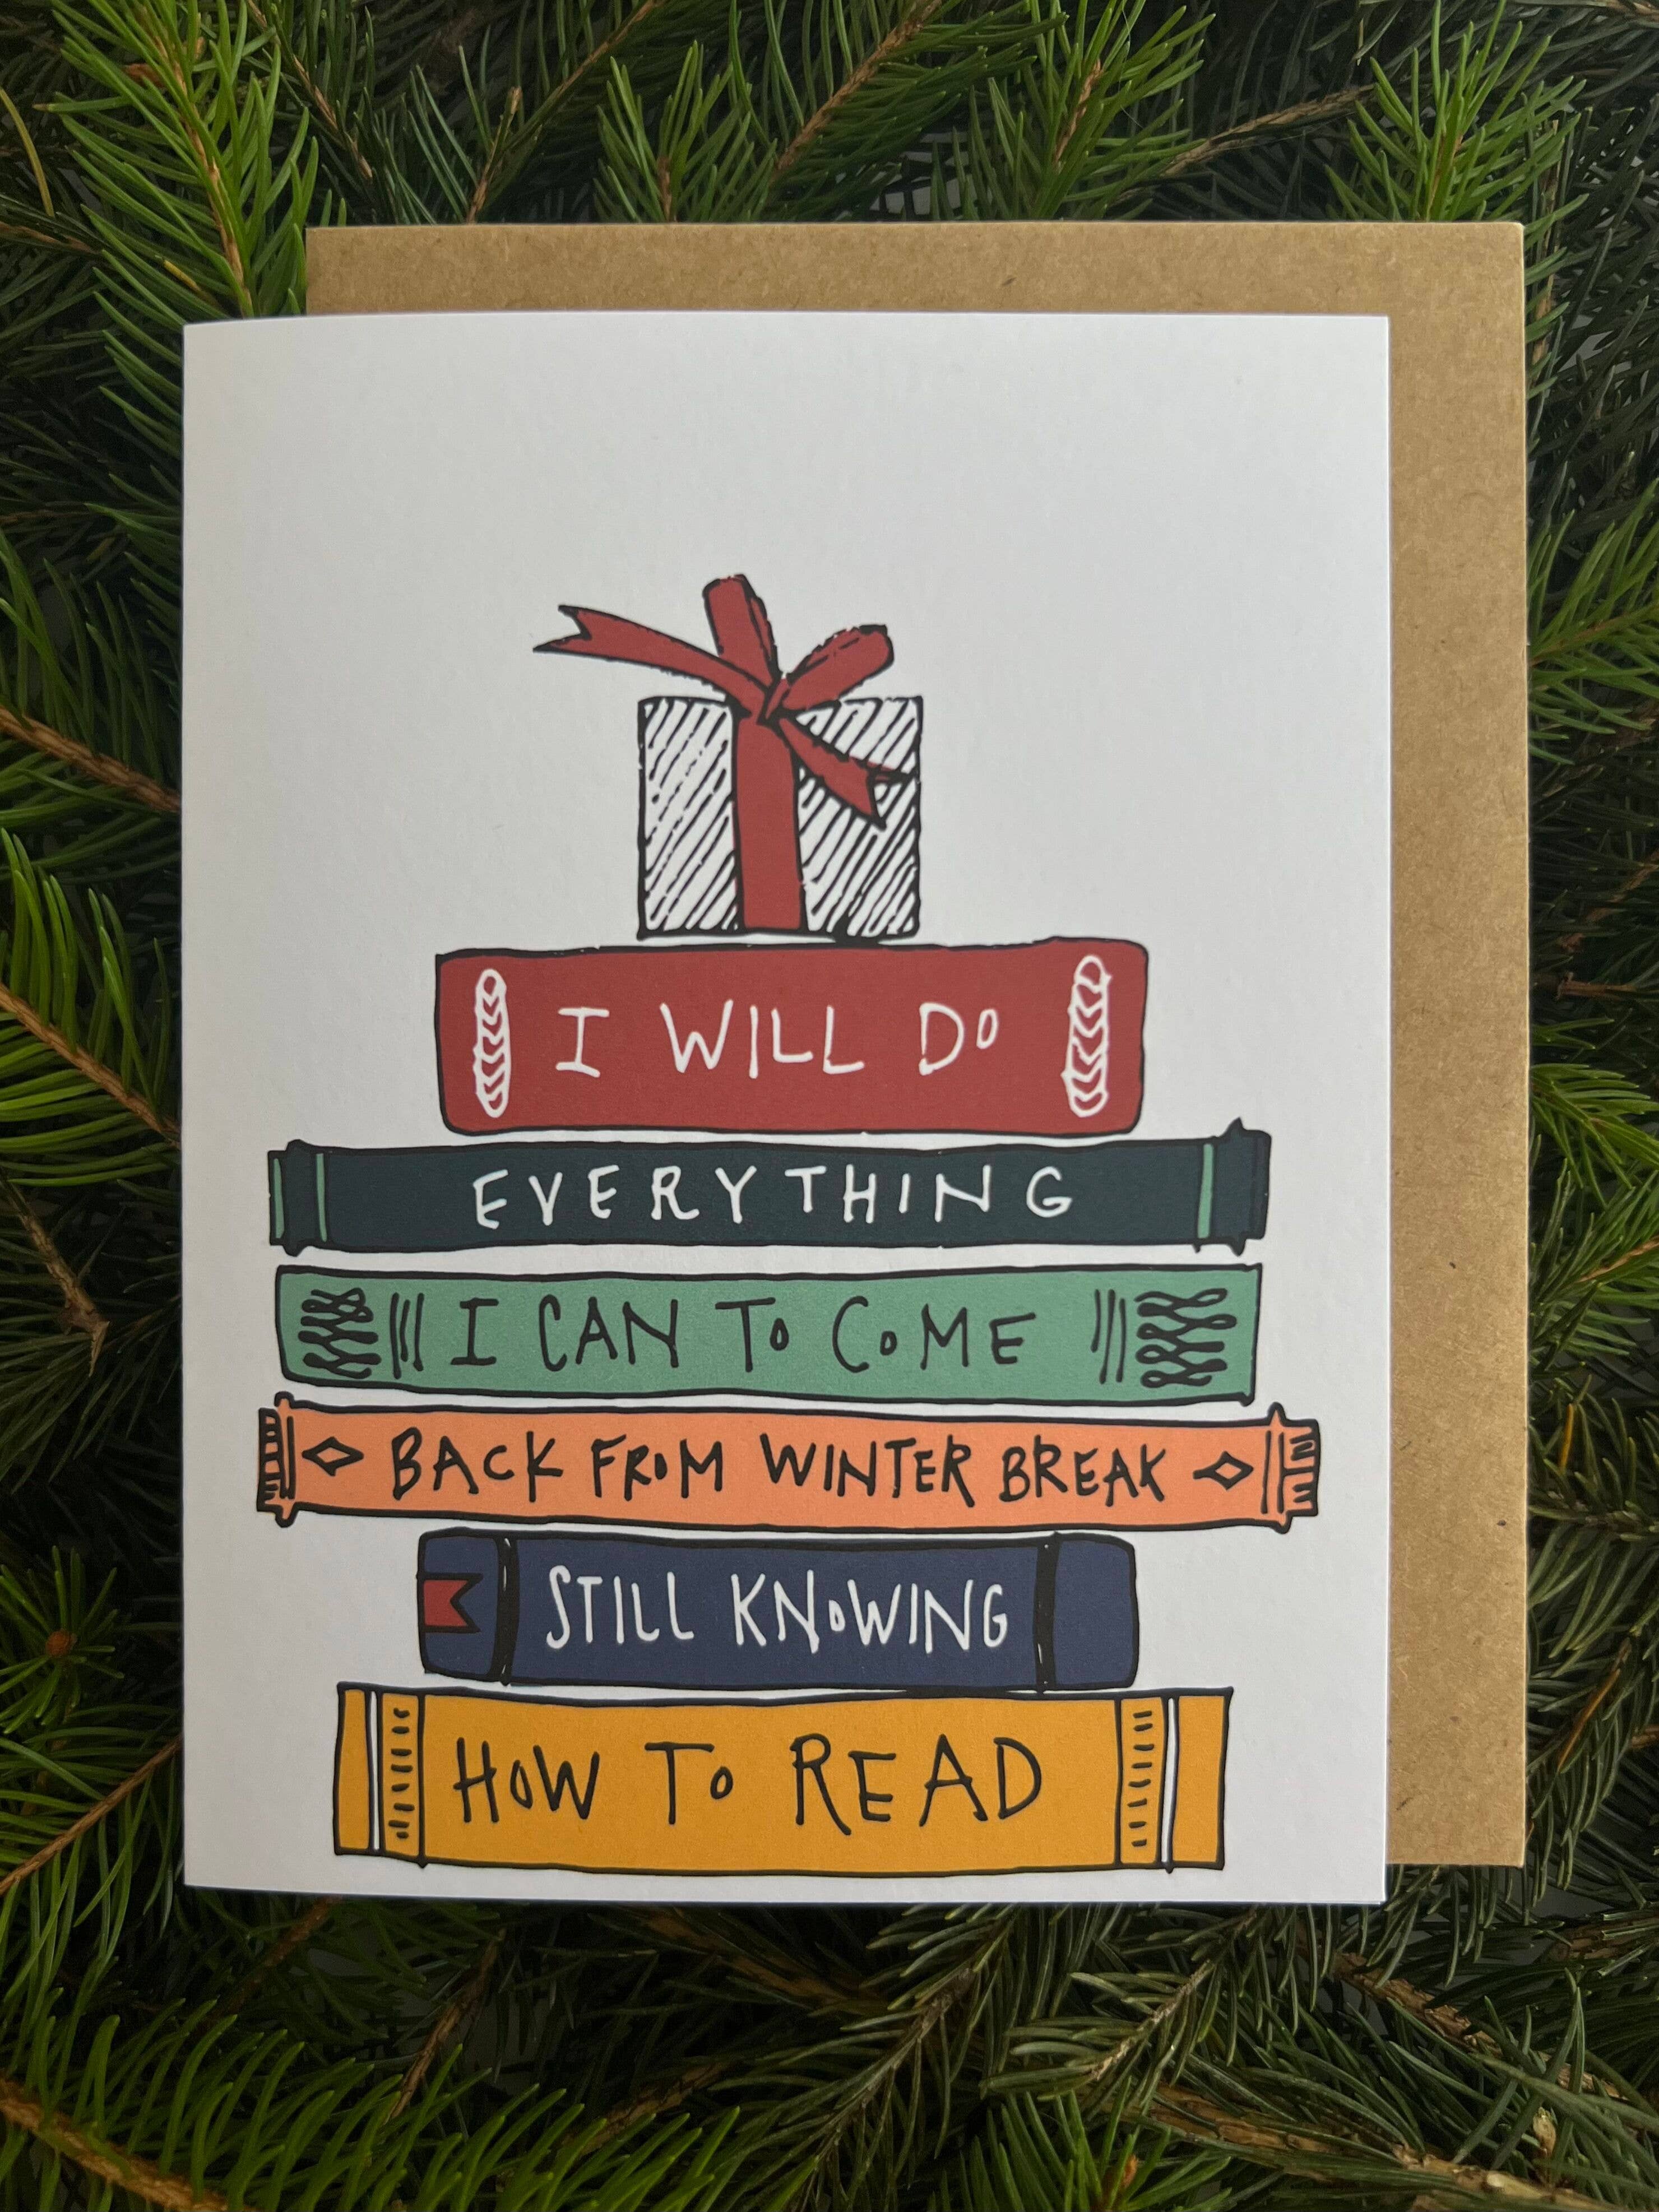 I WILL DO
EVERYTHING
I CAN TO COME
BACK FROM WINTER BREAK
STILL KNOWING
HOW TO READ